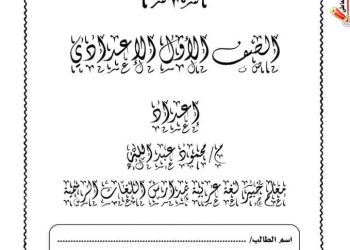 الصف الأول الإعدادي
إعداد
م/ محمود عبد الله
معلم خبير لغة عربية بمدارس اللغات الرسمية
اسم الطالب/ ........................................................